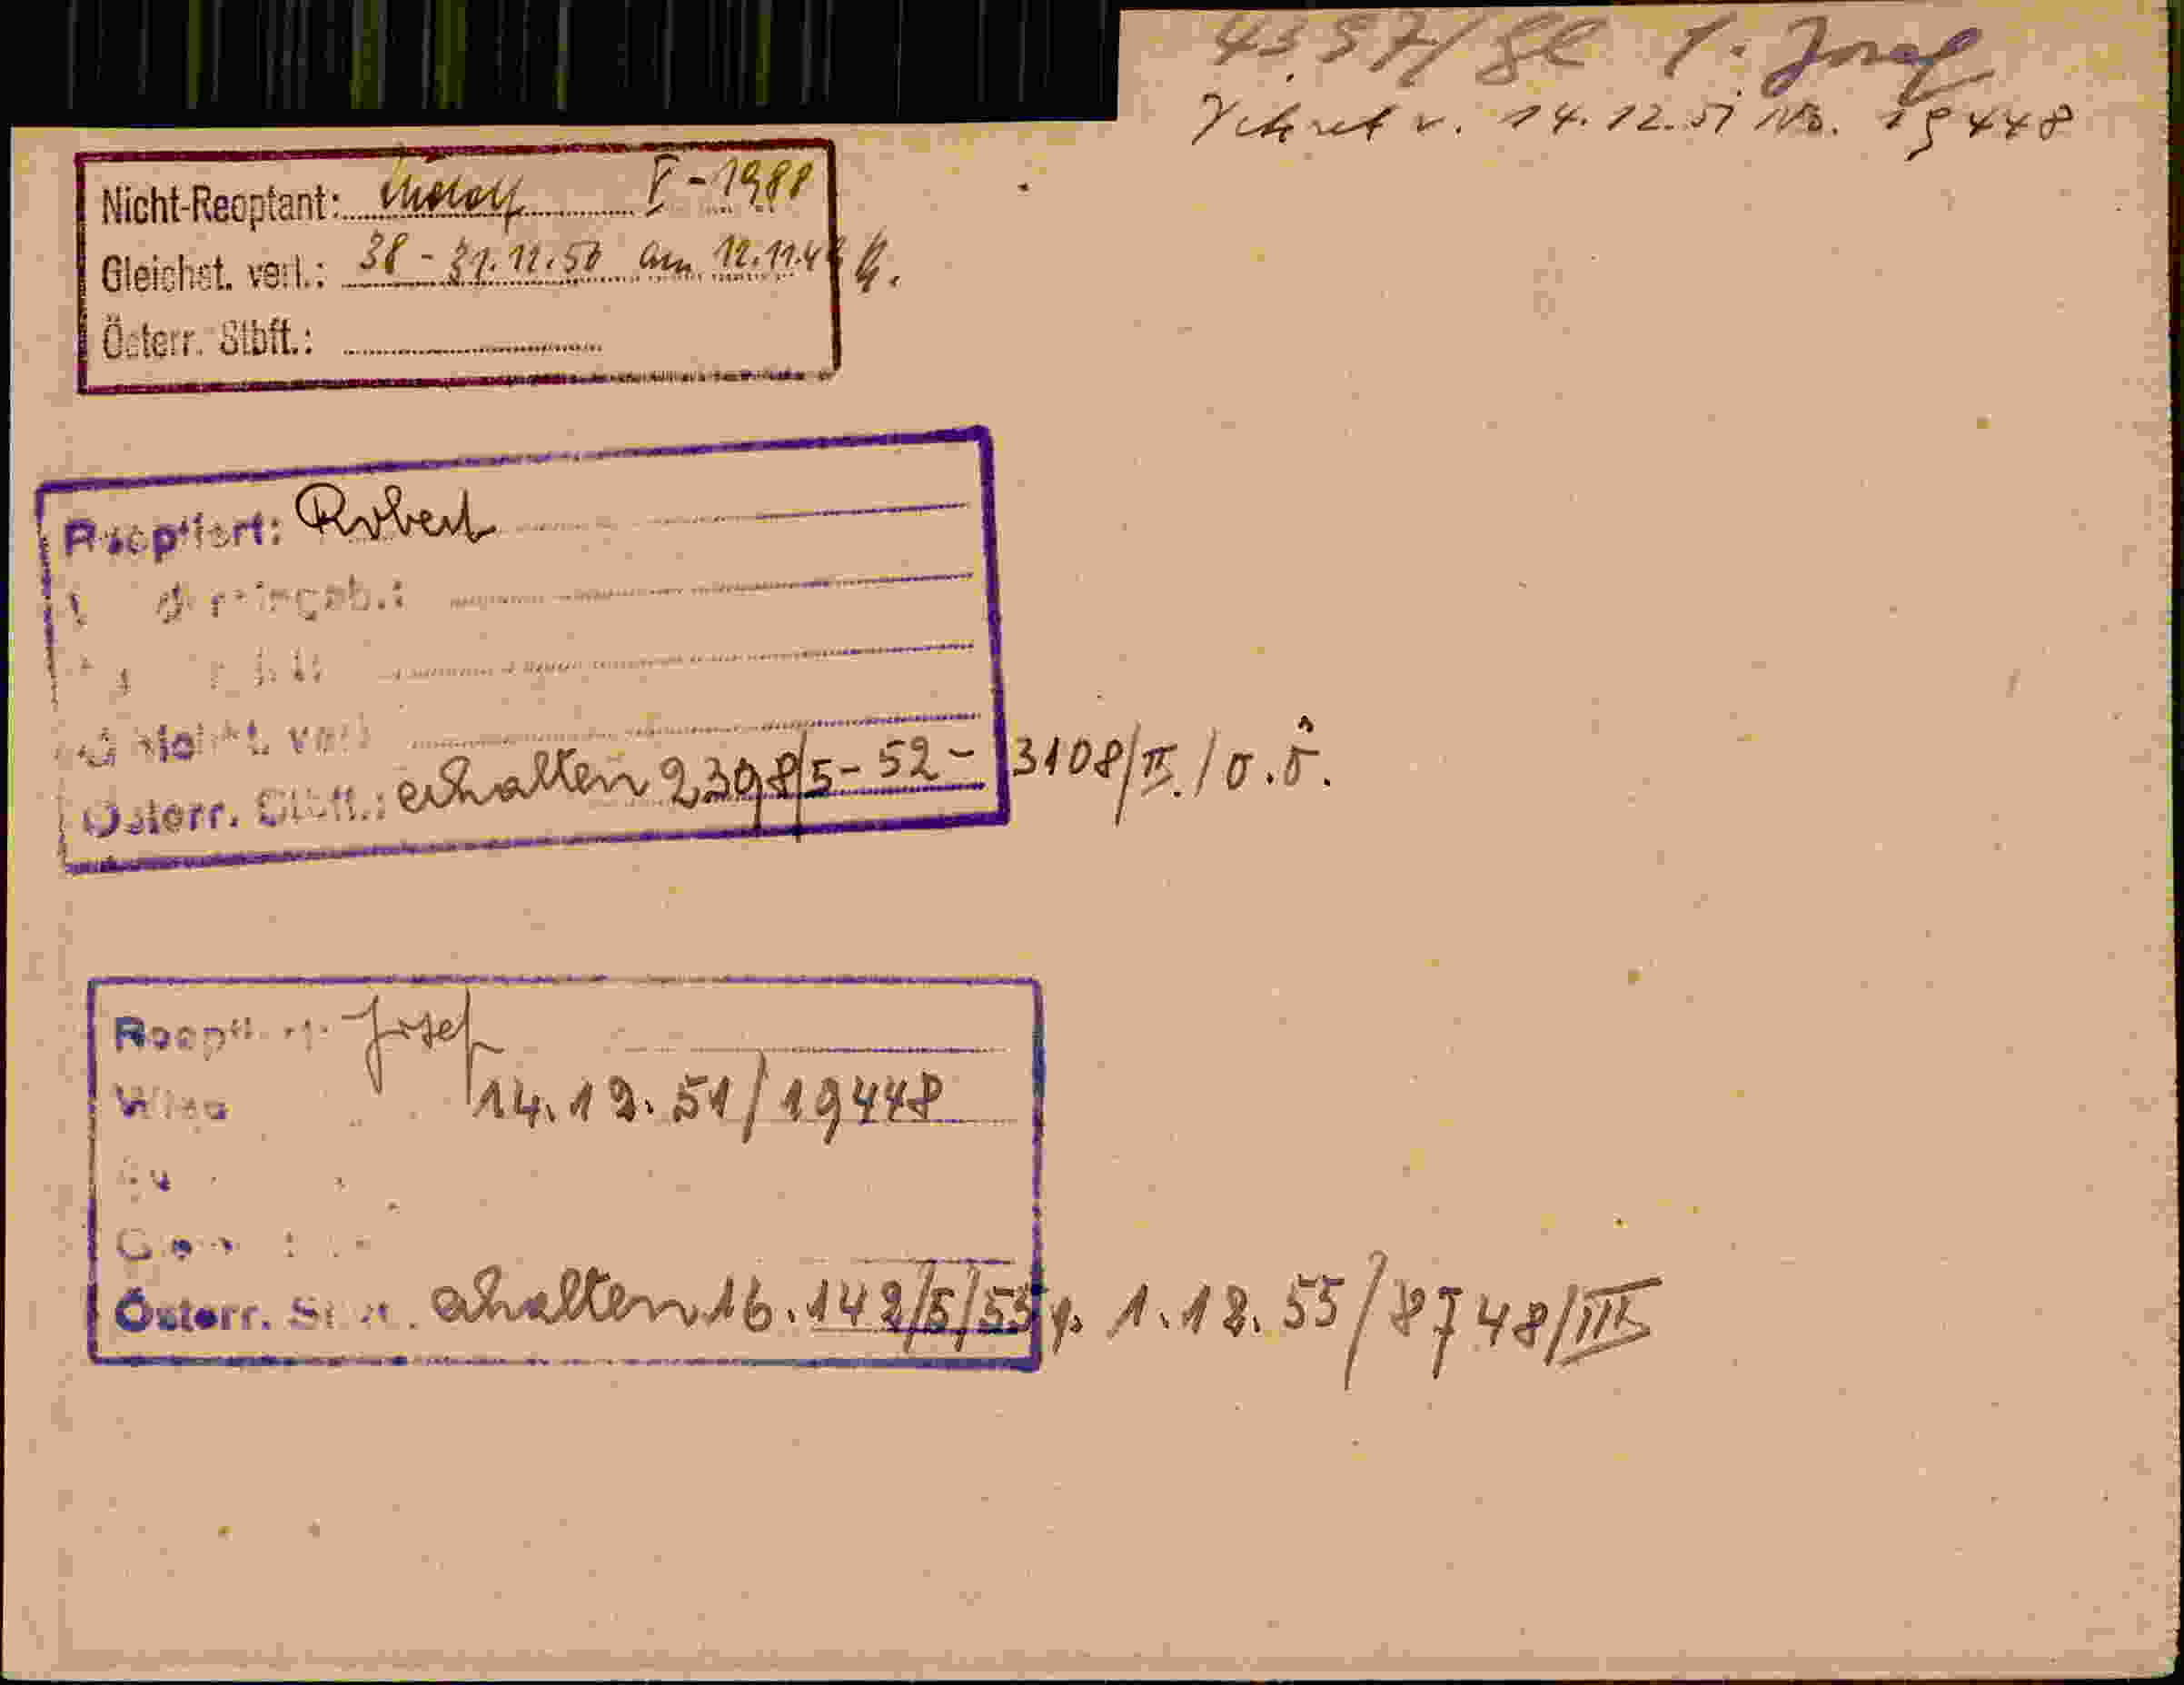 4357/Gl f. Josef
Dekret v. 14.12.51 No. 19448
Nicht-Reoptant: Rudolf V-1988
Gleichst. verl.: 38-31.12.50 am 12.11.48
Österr. Stbft.:
Reoptiert: Robert
Gleichst. verl.
Österr. Stbft.: erhalten 2398/5-52-3108/II./O.Ö.
Reoptiert: Josef
14.12.51/19448
Österr. erhalten 16.142/5/55 1.12.55/8748/III